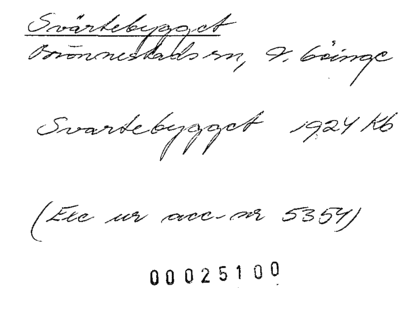 Svärtebygget
Brönnestads sn, V. Göinge
Svartebygget 1924 Kb
(Exc ur acc-nr 5354)
00025100